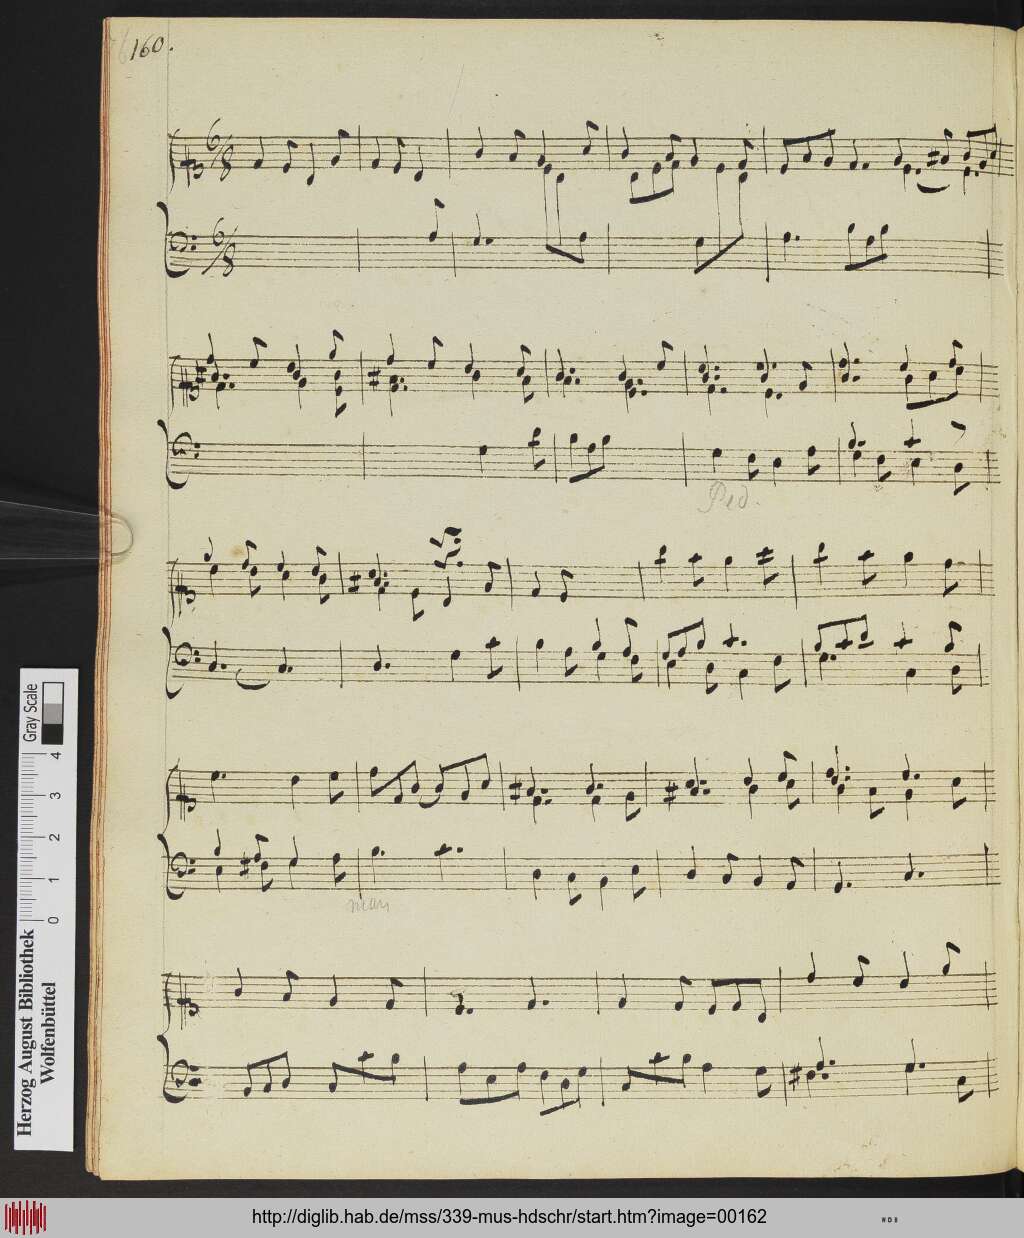 160.
6/8
6/8
Ped.
man
Gray Scale
0 1 2 3 4
Herzog August Bibliothek
Wolfenbüttel
http://diglib.hab.de/mss/339-mus-hdschr/start.htm?image=00162
WDB